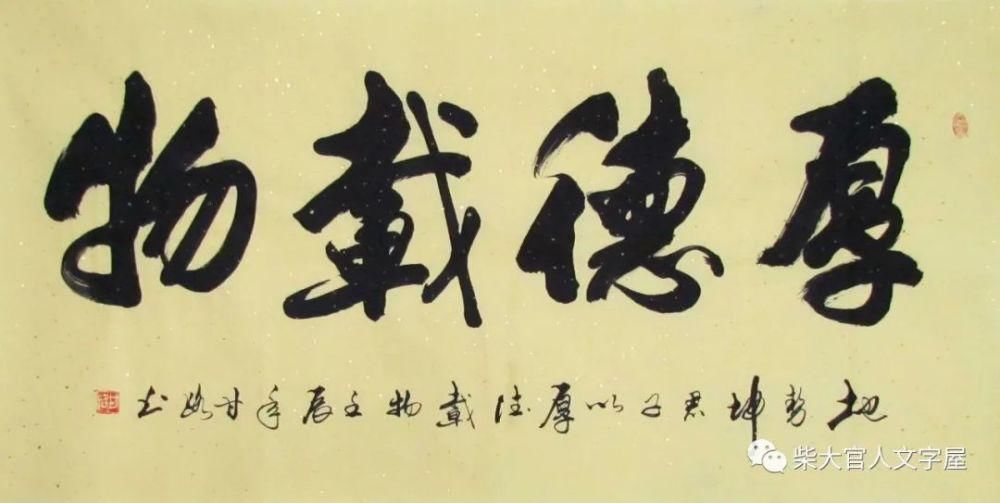 厚德載物
地勢坤君子以厚德載物壬辰年甘海書
柴大官人文字屋